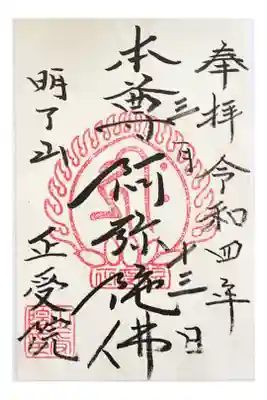 奉拝 令和四年
三月十三日
本尊 阿弥陀佛
明了山
正受院